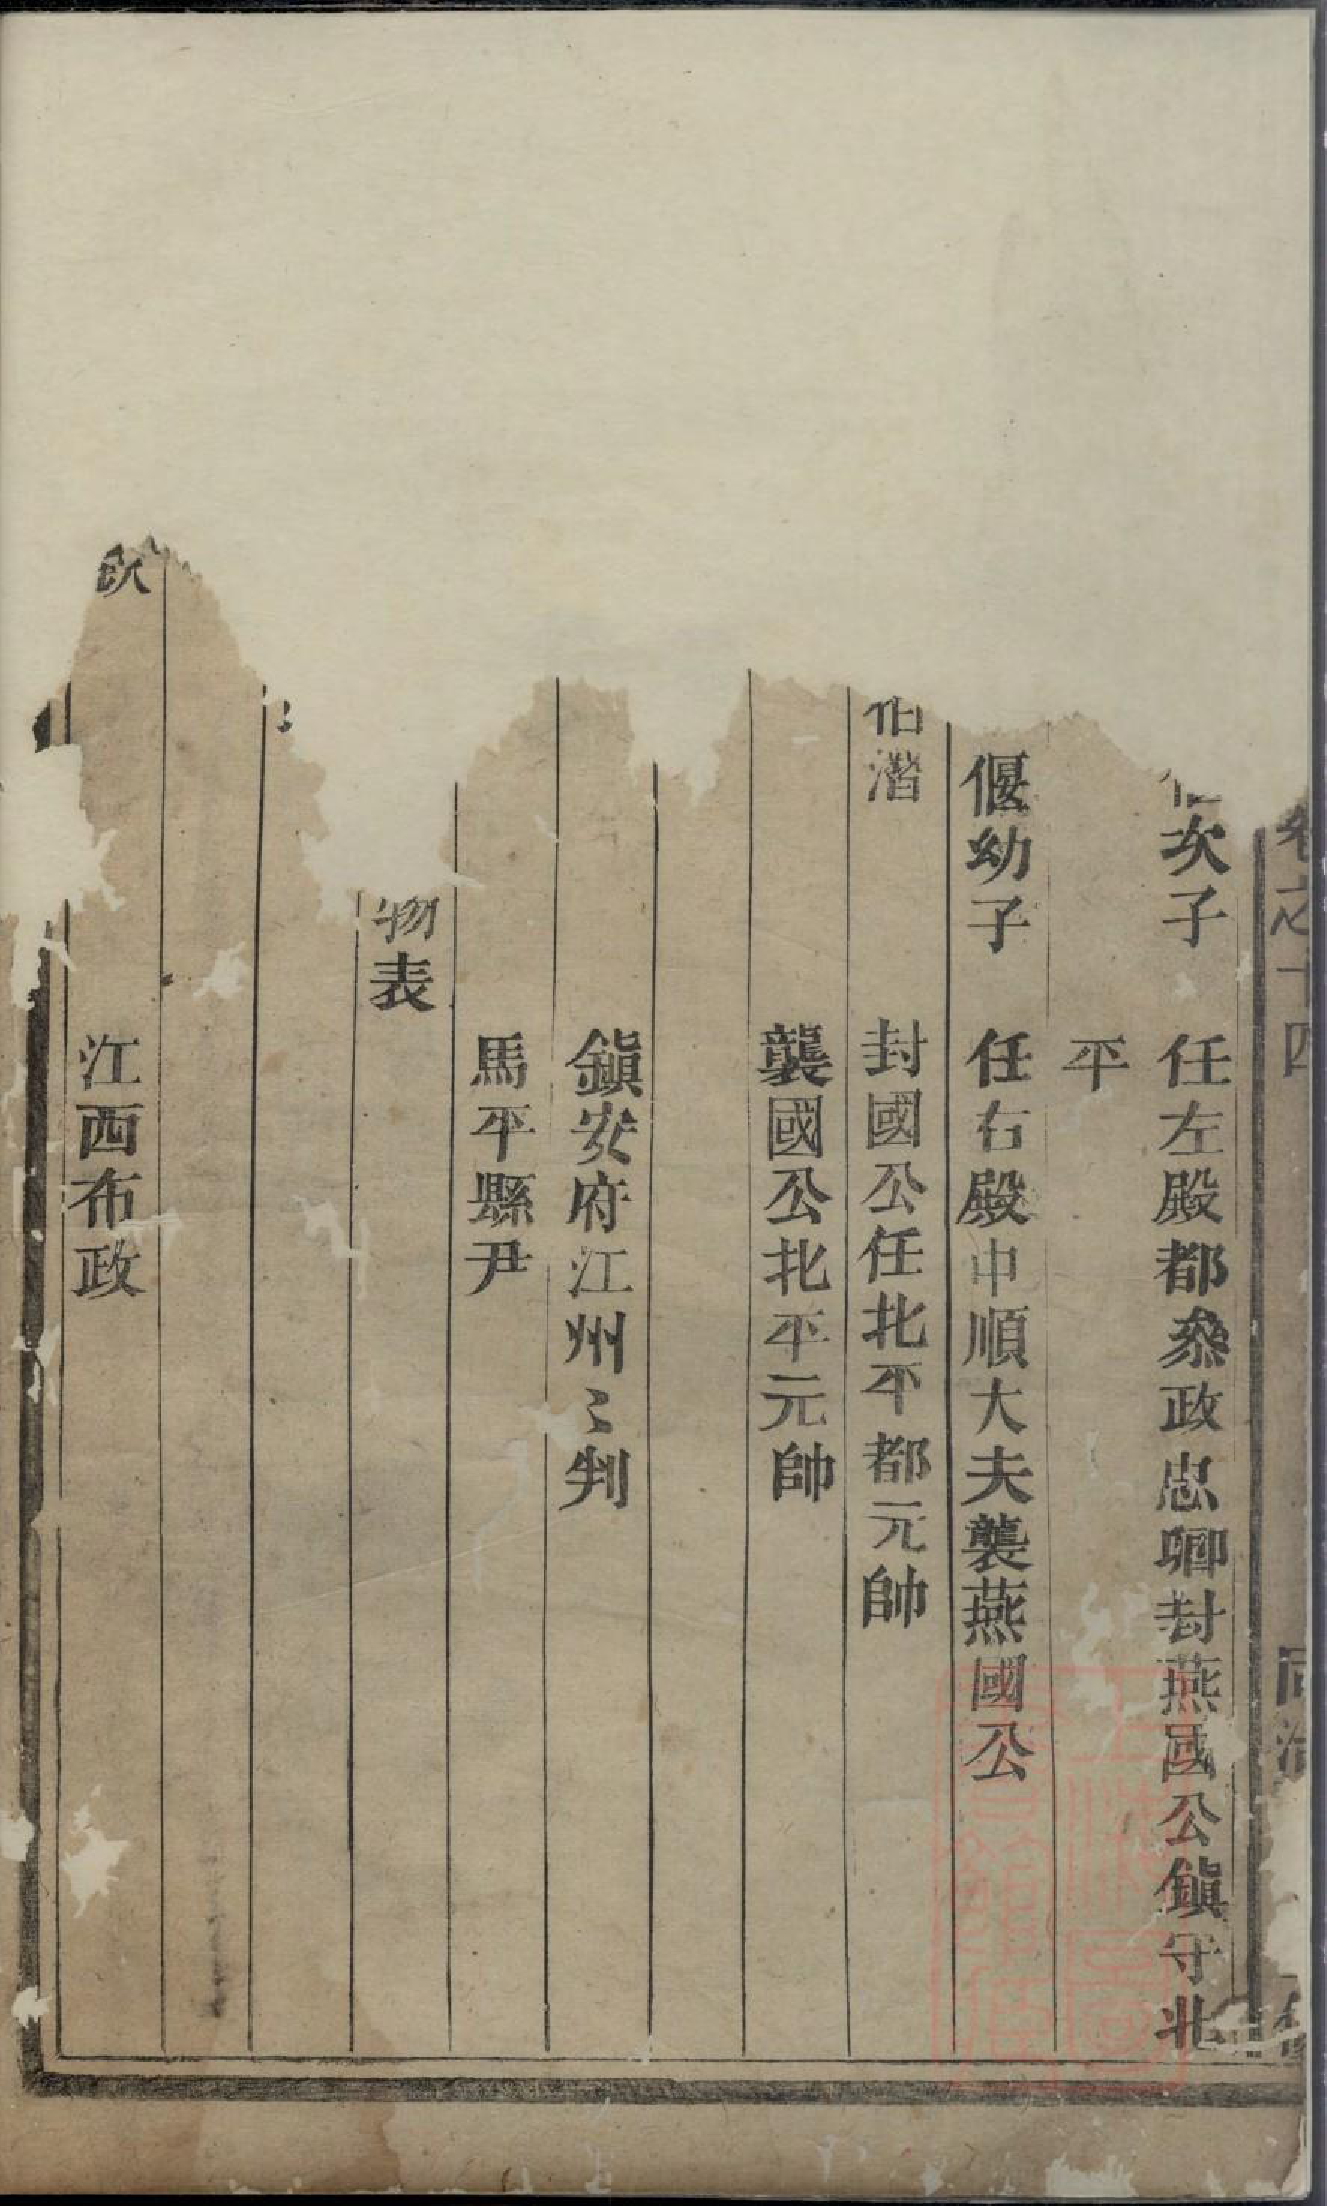 卷之十四 同治
次子 任左殿都叅政忠卿封燕國公鎭守北
平
偃幼子 任右殿中順大夫襲燕國公
伯潛 封國公任北平都元帥
襲國公北平元帥
鎭安府江州〻判
馬平縣尹
物表
江西布政